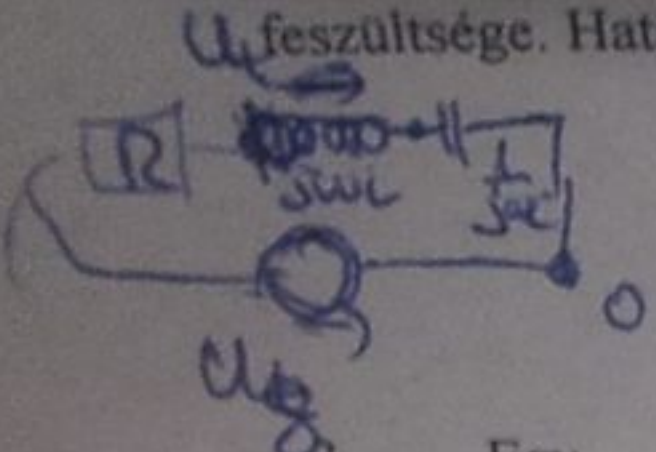 U_L feszültsége. Hat
R
jωL
1
jωC
0
U_g